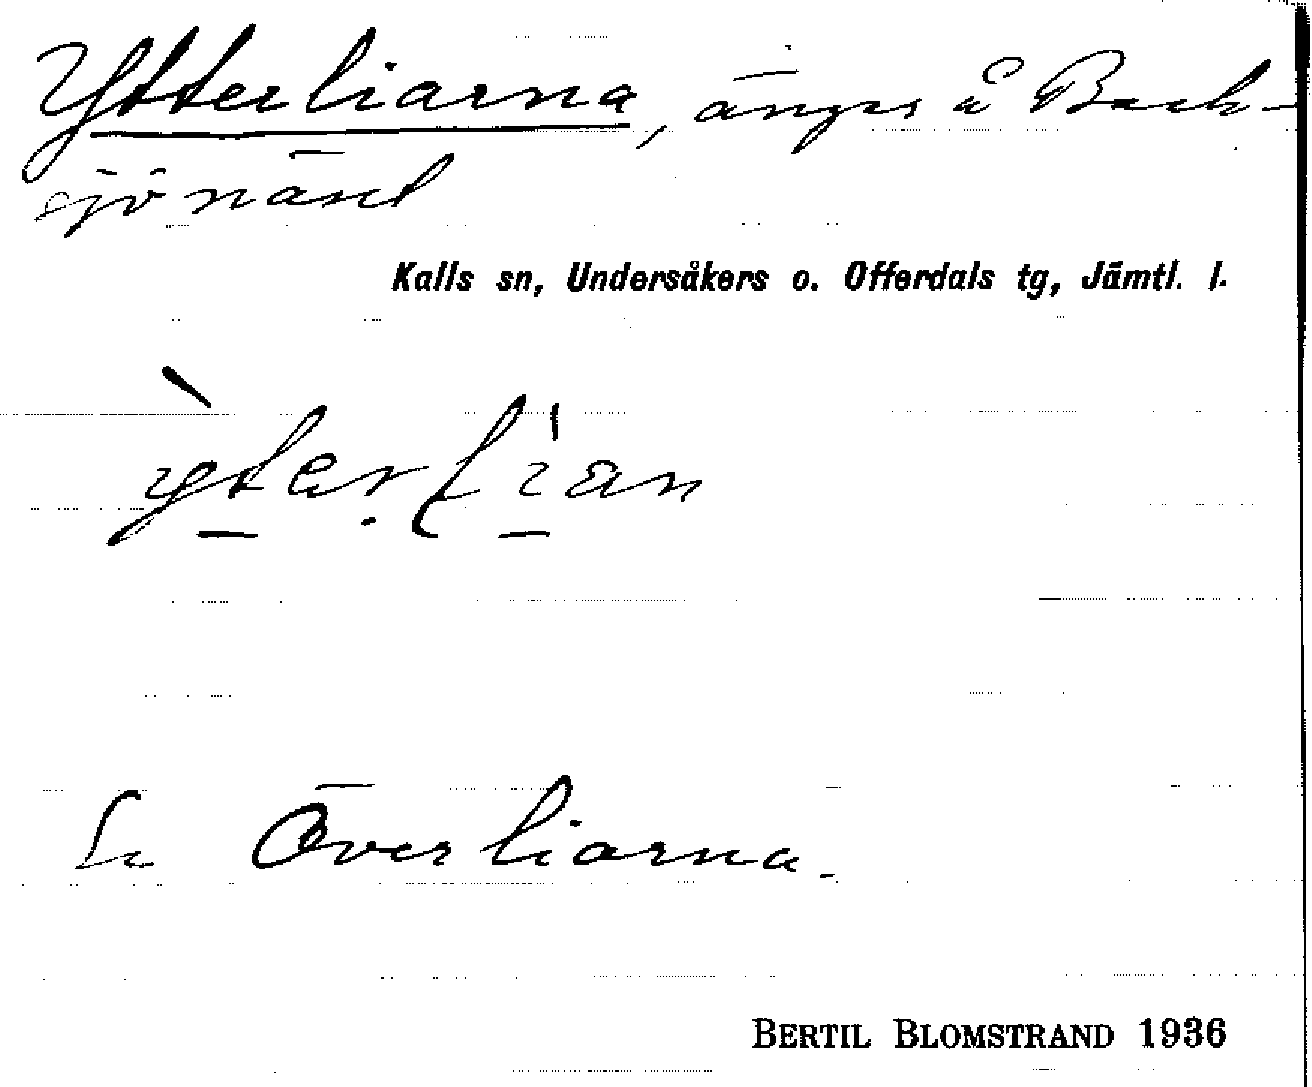 Ytterliarna, ängar å Back-
sjönäset
Kalls sn, Undersåkers o. Offerdals tg, Jämtl. l.
Se Överliarna.
BERTIL BLOMSTRAND 1936